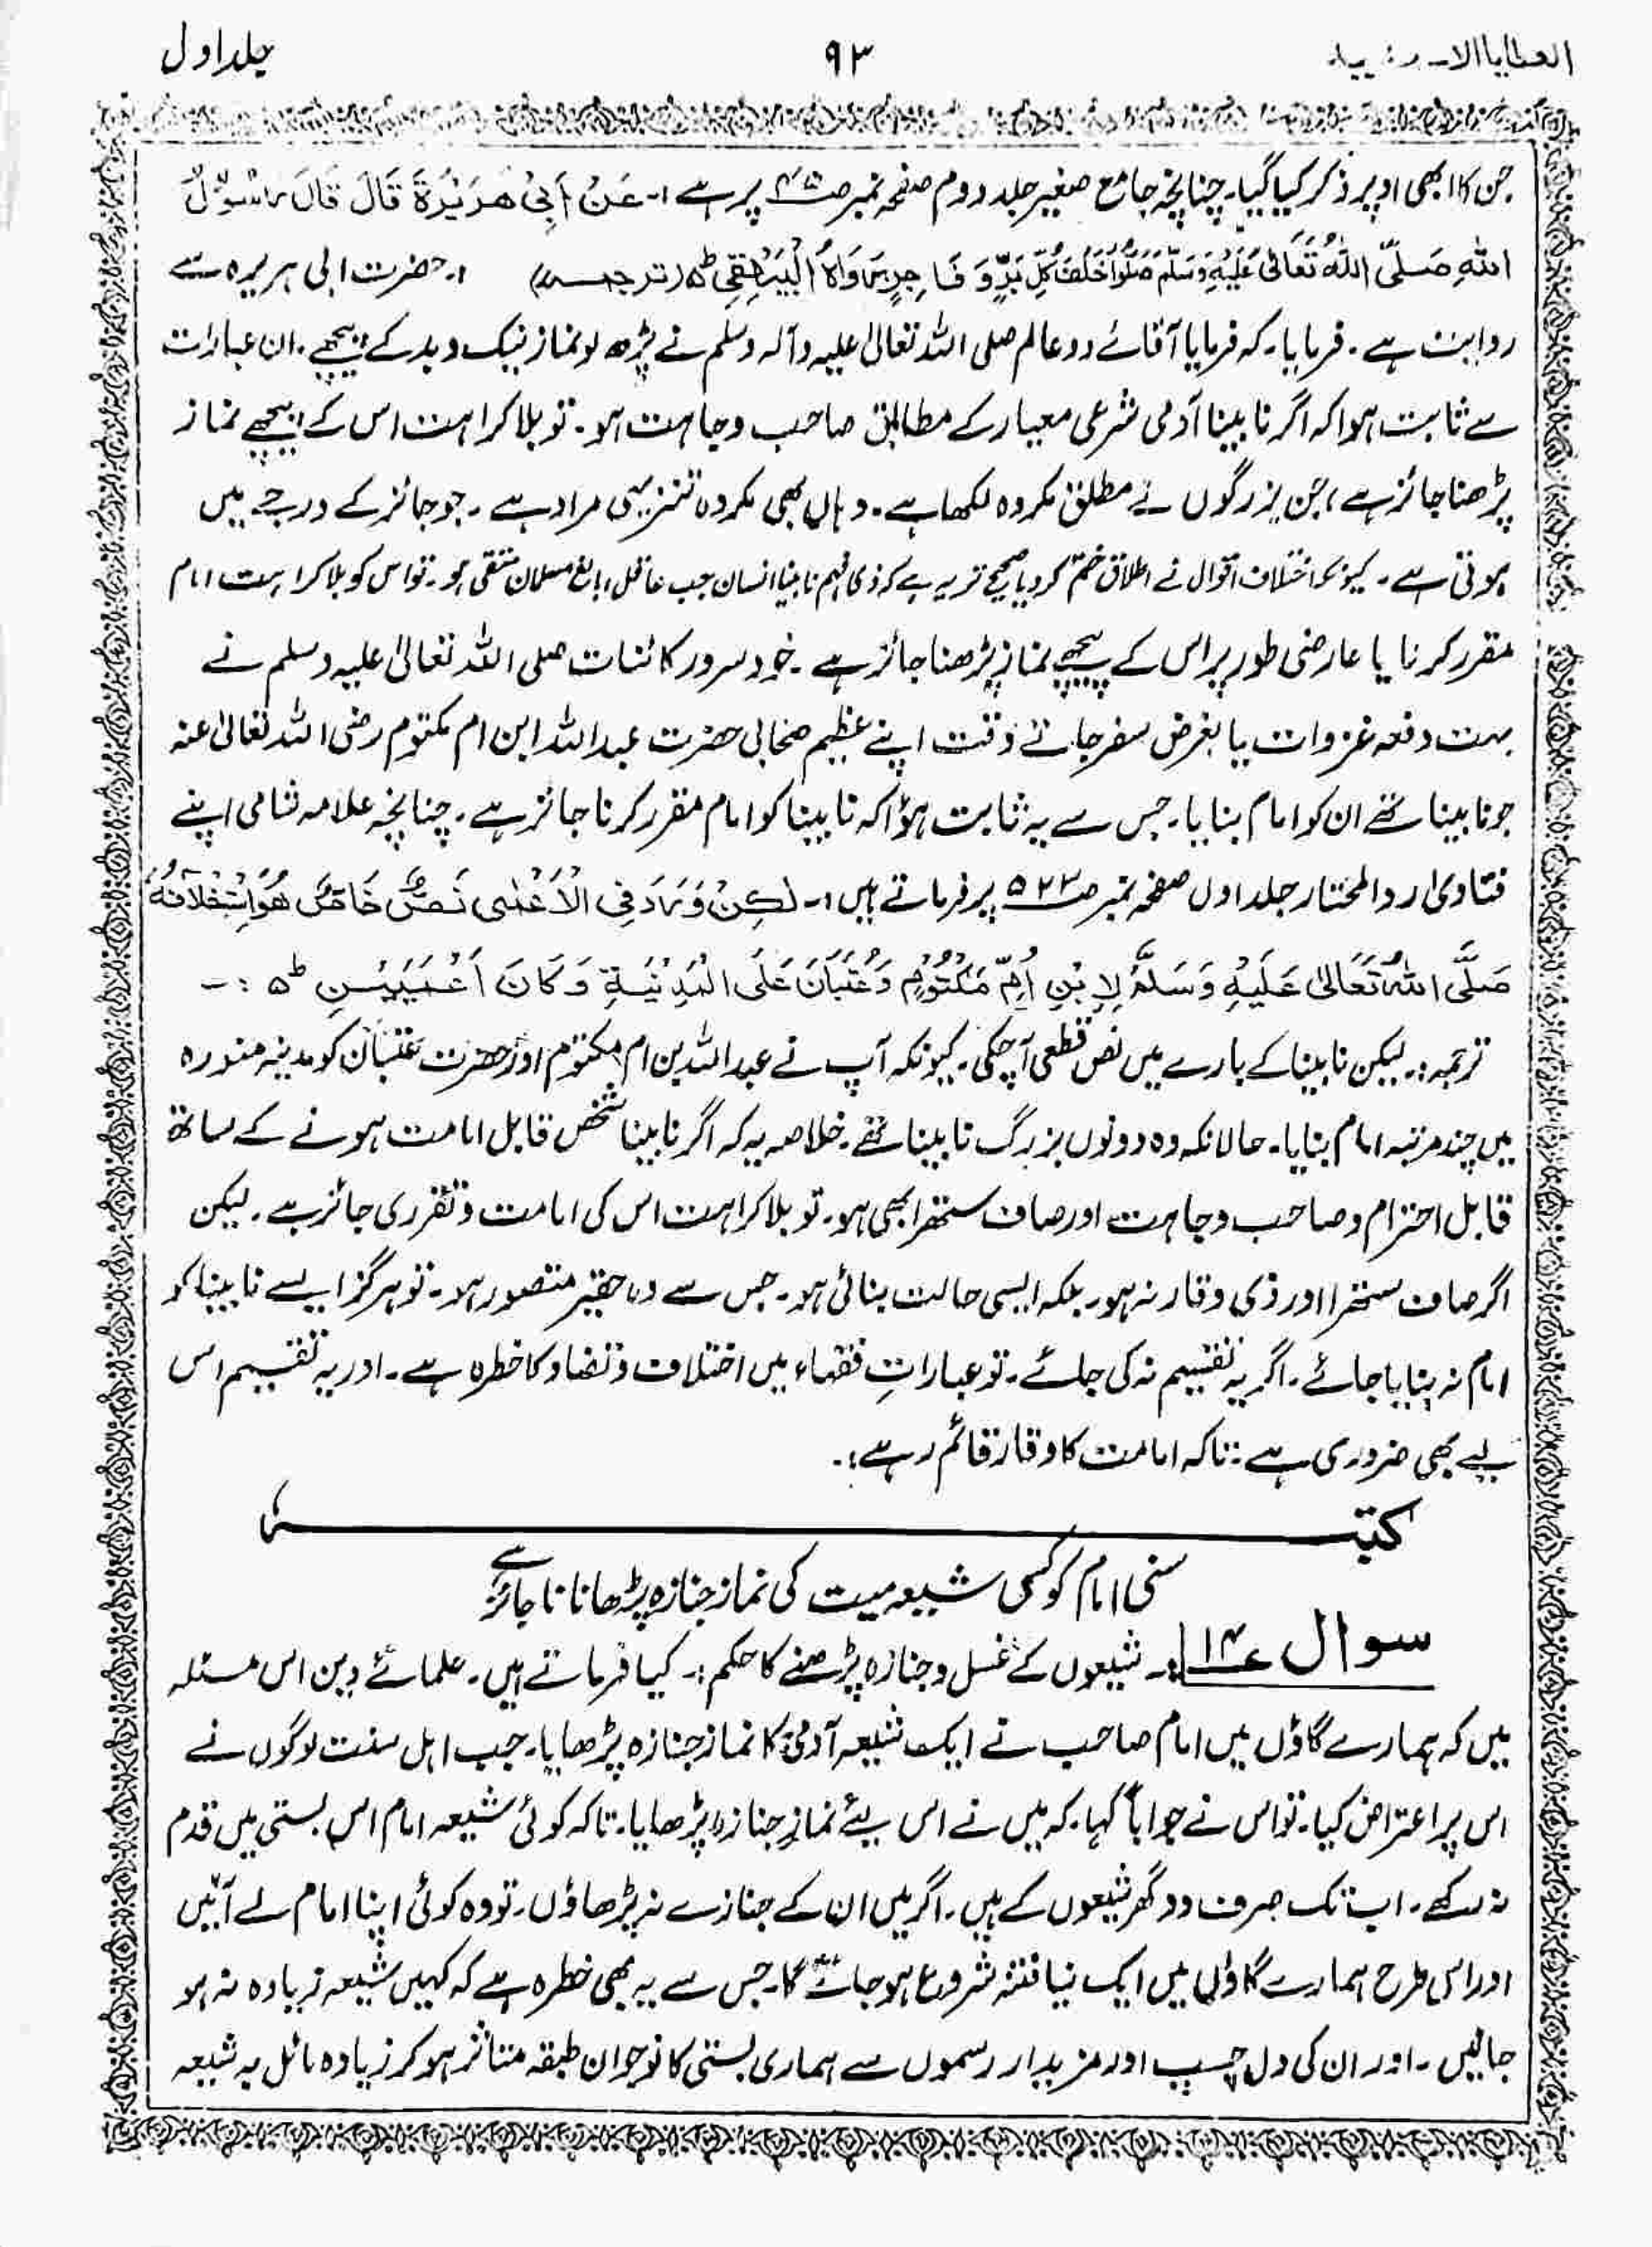 العطایا الا
۹۳
جلد اول
جن کا ابھی اوپر ذکر کیا گیا۔ چنانچہ جامع صغیر جلد دوم صفحہ نمبر پر ہے :۔ عَنْ اَبِیْ ھُرَیْرَةَ قَالَ قَالَ رَسُوْلُ
اللّٰہِ صَلَّی اللّٰہُ تَعَالٰی عَلَیْہِ وَسَلَّمَ صَلُّوْا خَلْفَ کُلِّ بَرٍّ وَ فَاجِرٍ رَوَاہُ الْبَیْھَقِیْ ط ۵ (ترجمہ) :۔ حضرت ابی ہریرہ سے
روایت ہے۔ فرمایا۔ کہ فرمایا آقائے دو عالم صلی اللہ تعالیٰ علیہ وآلہ وسلم نے پڑھ لو نماز نیک و بد کے پیچھے۔ ان عبارات
سے ثابت ہوا کہ اگر نابینا آدمی شرعی معیار کے مطابق صاحب وجاہت ہو۔ تو بلا کراہت اس کے پیچھے نماز
پڑھنا جائز ہے، جن بزرگوں نے مطلق مکروہ لکھا ہے۔ وہاں بھی مکروہ تنزیہی مراد ہے۔ جو جائز کے درجے میں
ہوتی ہے۔ کیونکہ اختلاف اقوال نے اطلاق ختم کر دیا صحیح تر یہ ہے کہ ذی فہم نابینا انسان جب عاقل، بالغ مسلمان متقی ہو۔ تو اس کو بلا کراہت امام
مقرر کرنا یا عارضی طور پر اس کے پیچھے نماز پڑھنا جائز ہے۔ خود سرور کائنات صلی اللہ تعالیٰ علیہ وسلم نے
بہت دفعہ غزوات یا بغرض سفر جاتے وقت اپنے عظیم صحابی حضرت عبداللہ ابن ام مکتوم رضی اللہ تعالیٰ عنہ
جو نابینا تھے ان کو امام بنایا۔ جس سے یہ ثابت ہوٗا کہ نابینا کو امام مقرر کرنا جائز ہے۔ چنانچہ علامہ شامی اپنے
فتاویٰ رد المحتار جلد اول صفحہ نمبر صـ ۵۲۳ پر فرماتے ہیں :۔ لٰکِنْ وَرَدَ فِی الْاَعْمٰی نَصٌّ خَاصٌّ ھُوَ اِسْتِخْلَافُہُ
صَلَّی اللّٰہُ تَعَالٰی عَلَیْہِ وَسَلَّمَ لِاِبْنِ اُمِّ مَکْتُوْمٍ وَ عُتْبَانَ عَلَی الْمَدِیْنَةِ وَ کَانَ اَعْمَیَیْنِ ط ۵ :۔
ترجمہ :۔ لیکن نابینا کے بارے میں نص قطعی آچکی۔ کیونکہ آپ نے عبداللہ بن ام مکتوم اور حضرت عتبان کو مدینہ منورہ
میں چند مرتبہ امام بنایا۔ حالانکہ وہ دونوں بزرگ نابینا تھے۔ خلاصہ یہ کہ اگر نابینا شخص قابل امامت ہونے کے ساتھ
قابل احترام و صاحب وجاہت اور صاف ستھرا بھی ہو۔ تو بلا کراہت اس کی امامت و تقرری جائز ہے۔ لیکن
اگر صاف ستھرا اور ذی وقار نہ ہو۔ بلکہ ایسی حالت بنائی ہو۔ جس سے وہ حقیر متصور ہو۔ تو ہرگز ایسے نابینا کو
امام نہ بنایا جائے۔ اگر یہ تقسیم نہ کی جائے۔ تو عباراتِ فقہاء میں اختلاف و تضاد کا خطرہ ہے۔ اور یہ تقسیم اس
لیے بھی ضروری ہے : تاکہ امامت کا وقار قائم رہے :۔
کتبہ
سنی امام کو کسی شیعہ میت کی نماز جنازہ پڑھانا ناجائز ہے
سوال ۱۴ :۔ شیعوں کے غسل و جنازہ پڑھنے کا حکم :۔ کیا فرماتے ہیں۔ علمائے دین اس مسئلہ
میں کہ ہمارے گاؤں میں امام صاحب نے ایک شیعہ آدمی کا نماز جنازہ پڑھایا۔ جب اہل سنت لوگوں نے
اس پر اعتراض کیا۔ تو اس نے جواباً کہا۔ کہ میں نے اس لیئے نماز جنازہ پڑھایا۔ تاکہ کوئی شیعہ امام اس بستی میں قدم
نہ رکھے۔ اب تک صرف دو گھر شیعوں کے ہیں۔ اگر میں ان کے جنازے نہ پڑھاؤں۔ تو وہ کوئی اپنا امام لے آئیں
اور اس طرح ہمارے گاؤں میں ایک نیا فتنہ شروع ہو جائے گا۔ جس سے یہ بھی خطرہ ہے کہ کہیں شیعہ زیادہ نہ ہو
جائیں۔ اور ان کی دل چسپ اور مزیدار رسموں سے ہماری بستی کا نوجوان طبقہ متاثر ہو کر زیادہ مائل بہ شیعہ